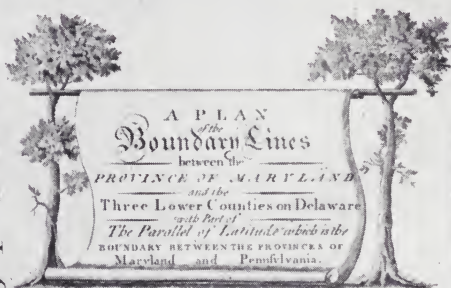 A PLAN
of the
Boundary Lines
between the
PROVINCE OF MARYLAND
and the
Three Lower Counties on Delaware
with Part of
The Parallel of Latitude which is the
BOUNDARY BETWEEN THE PROVINCES OF
Maryland and Pennsylvania.